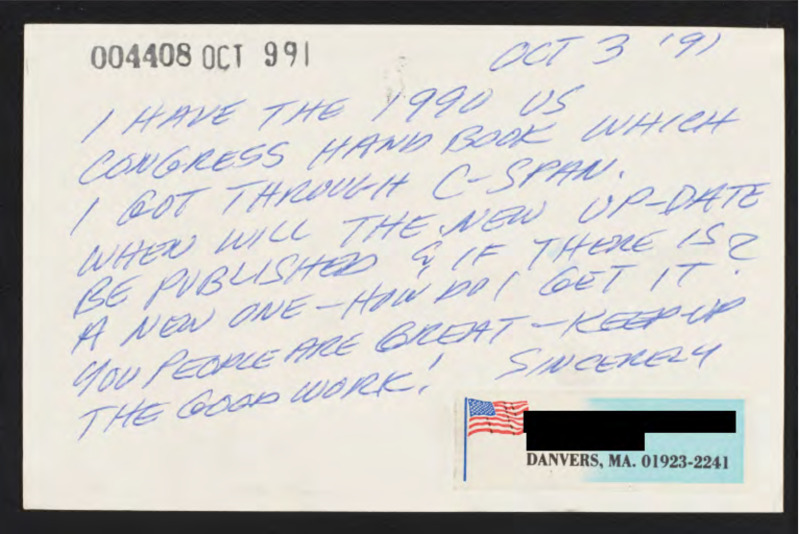 004408 OCT 991
OCT 3 '91
I HAVE THE 1990 US
CONGRESS HAND BOOK WHICH
I GOT THROUGH C-SPAN.
WHEN WILL THE NEW UP-DATE
BE PUBLISHED & IF THERE IS
A NEW ONE - HOW DO I GET IT?
YOU PEOPLE ARE GREAT - KEEP UP
THE GOOD WORK! SINCERELY
DANVERS, MA. 01923-2241